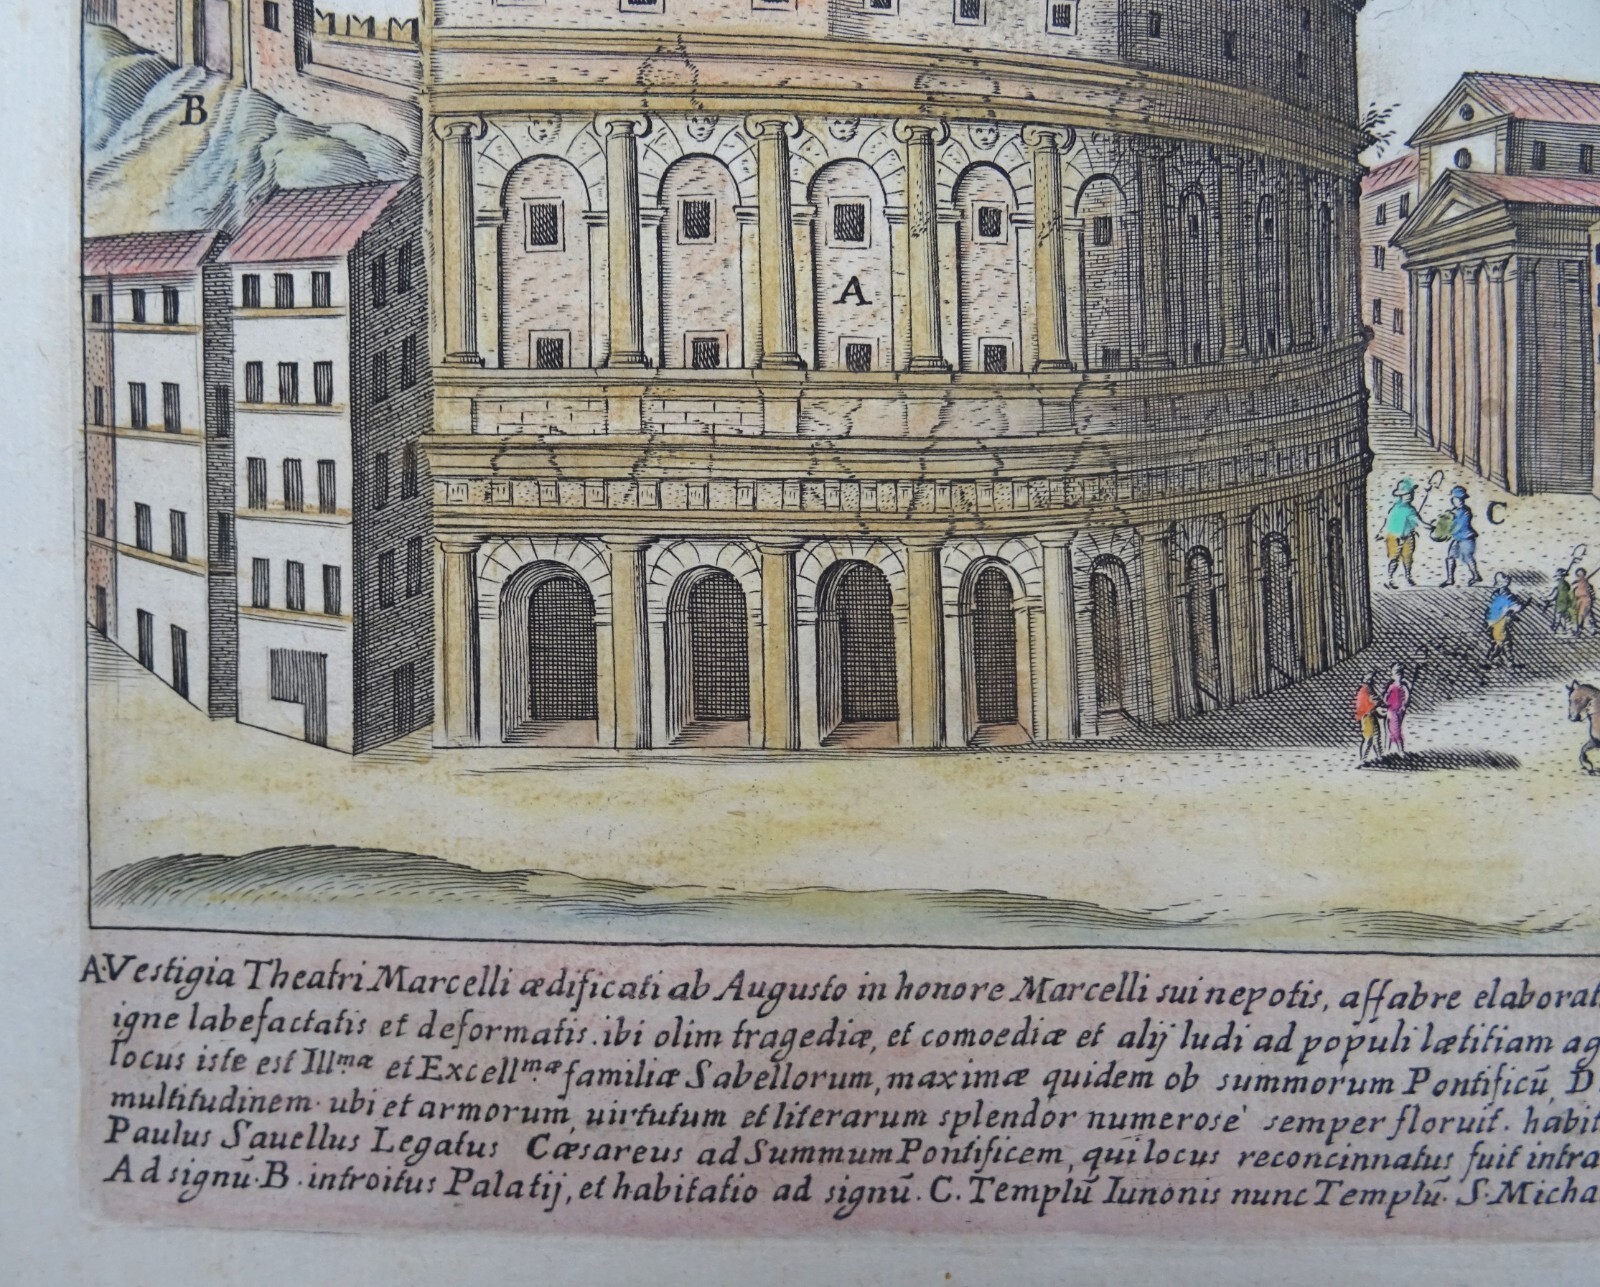 B
A
C
A. Vestigia Theatri Marcelli ædificati ab Augusto in honore Marcelli sui nepotis, affabre elaborat
igne labefactatis et deformatis. ibi olim tragediæ, et comoediæ et alij ludi ad populi lætitiam ag
locus iste est Ill.mæ et Excell.mæ familiæ Sabellorum, maximæ quidem ob summorum Pontificū, D
multitudinem. ubi et armorum, uirtutum et literarum splendor numerose' semper floruit. habit
Paulus Sauellus Legatus Cæsareus ad Summum Pontificem, qui locus reconcinnatus fuit intra
Ad signū. B. introitus Palatij, et habitatio ad signū. C. Templū Iunonis nunc Templū. S. Micha